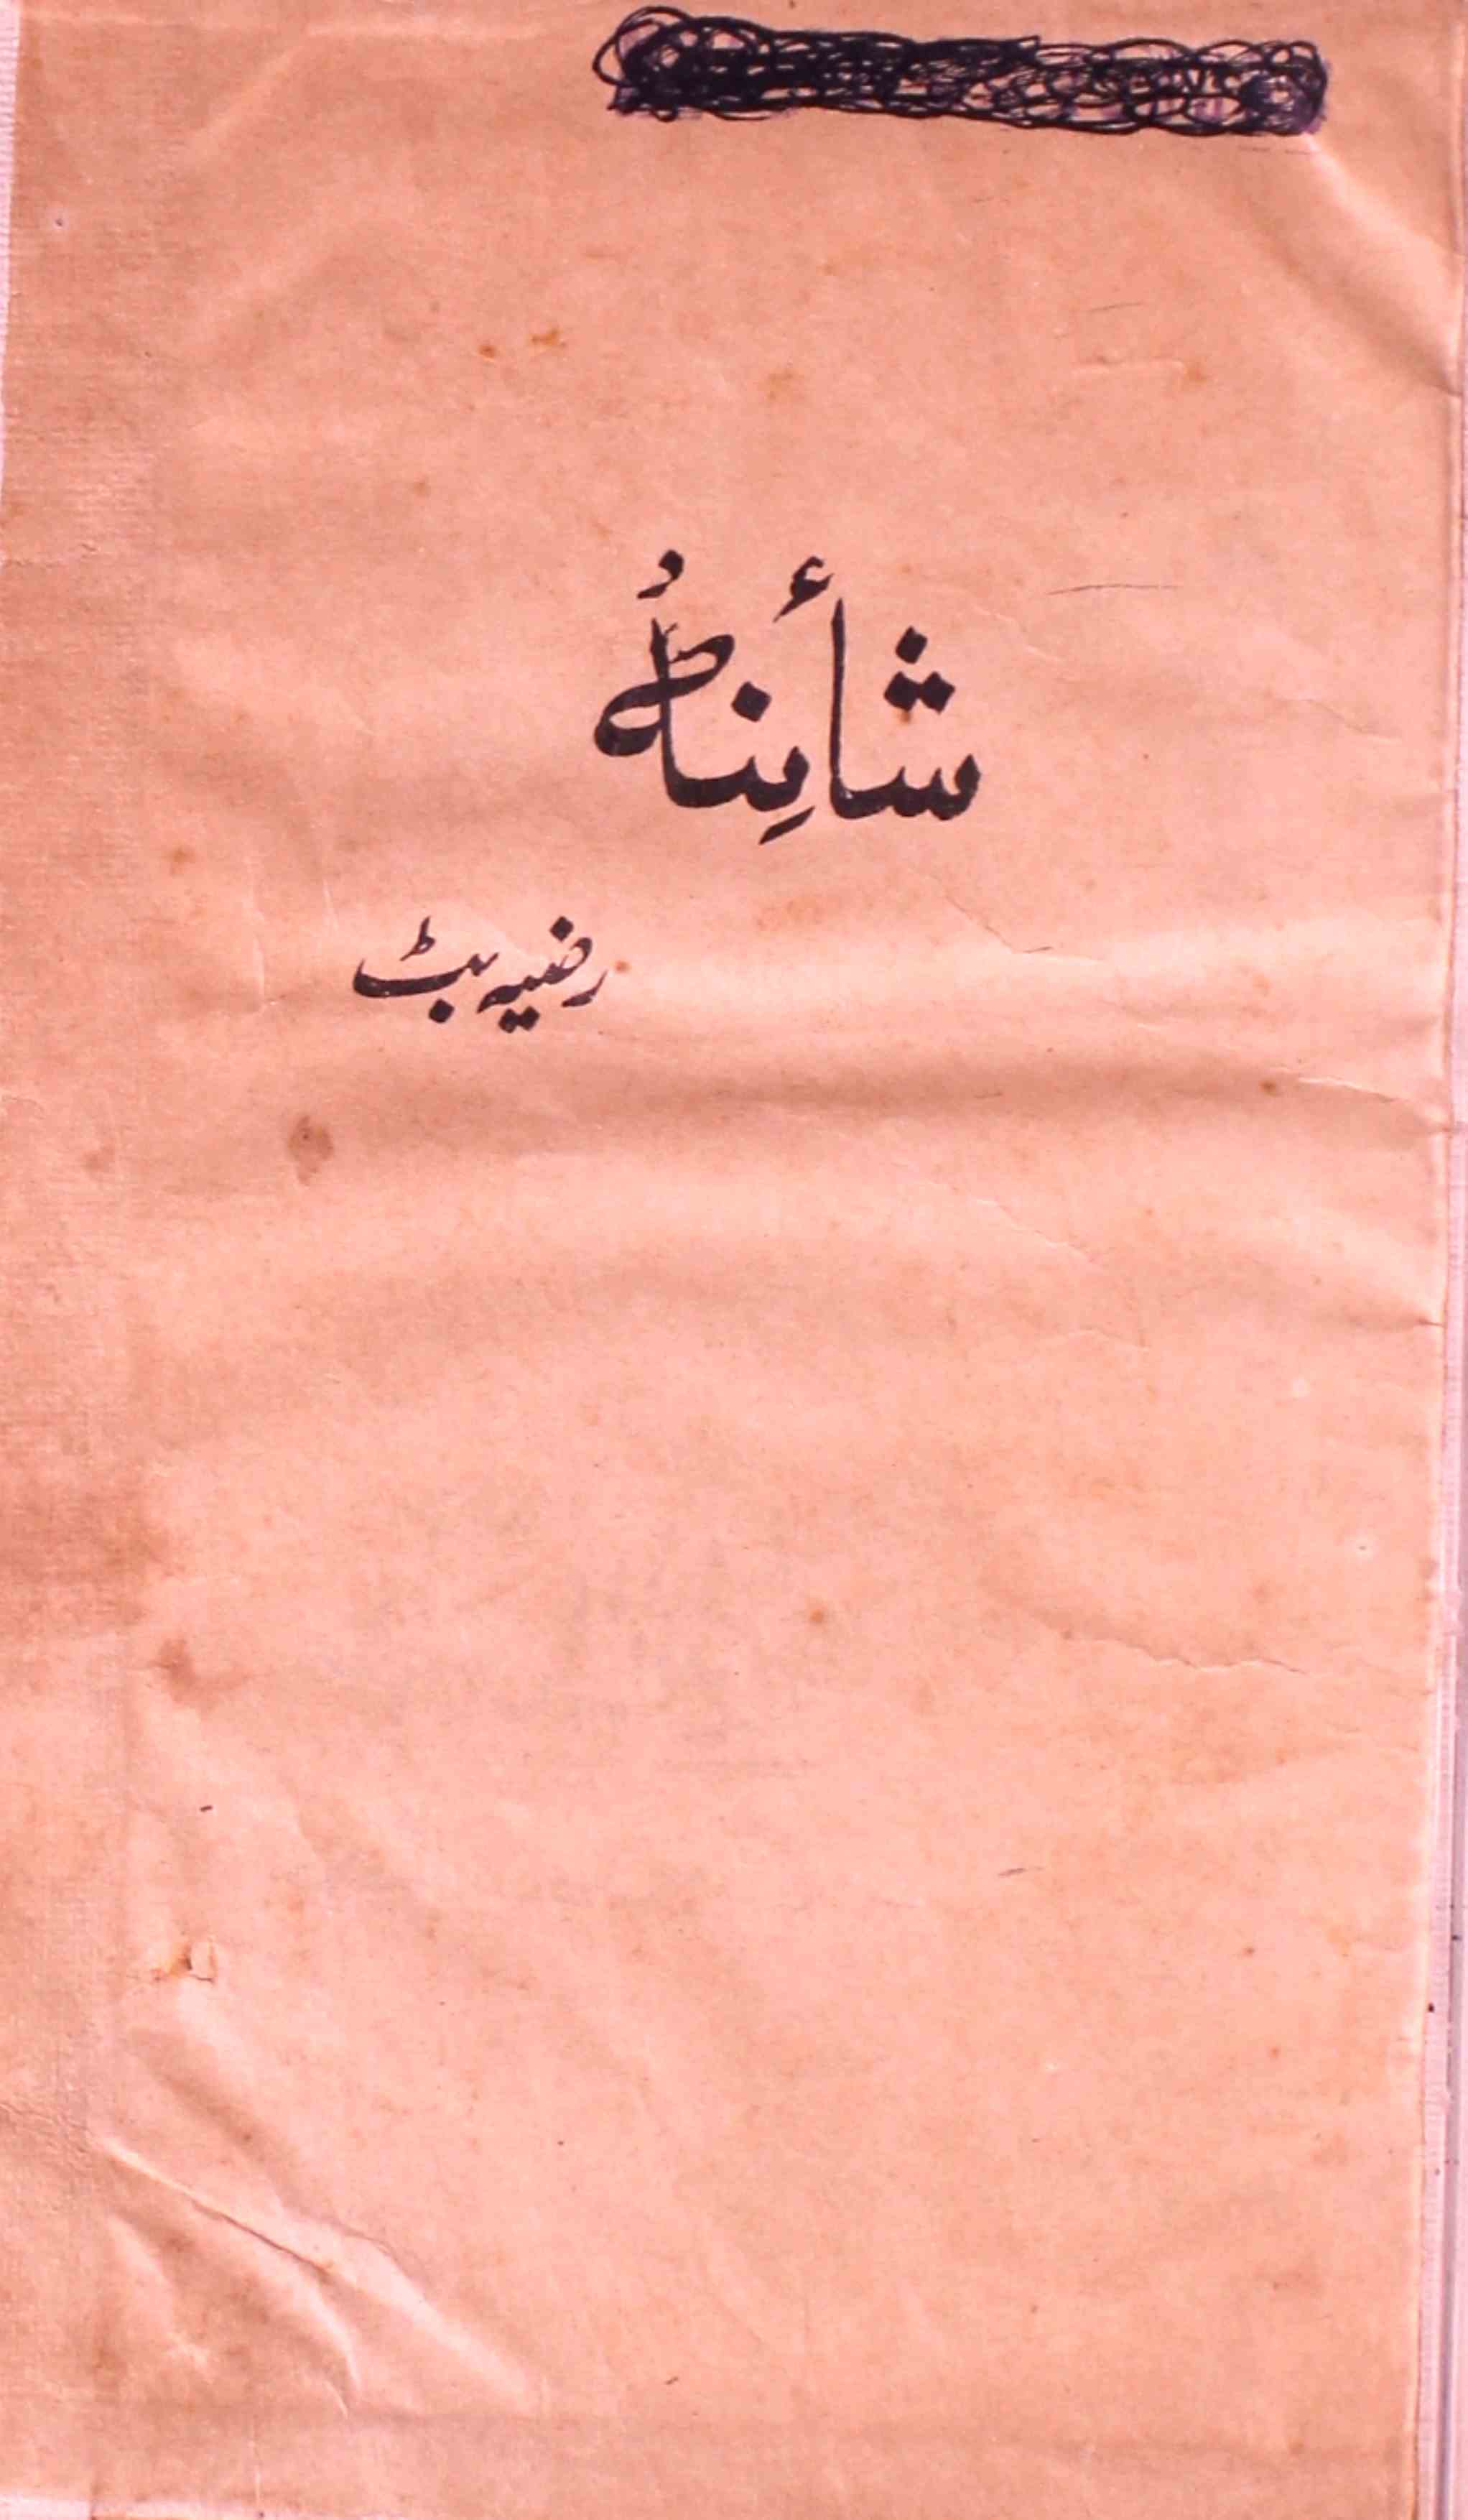 شائنہ
رضیہ بٹ